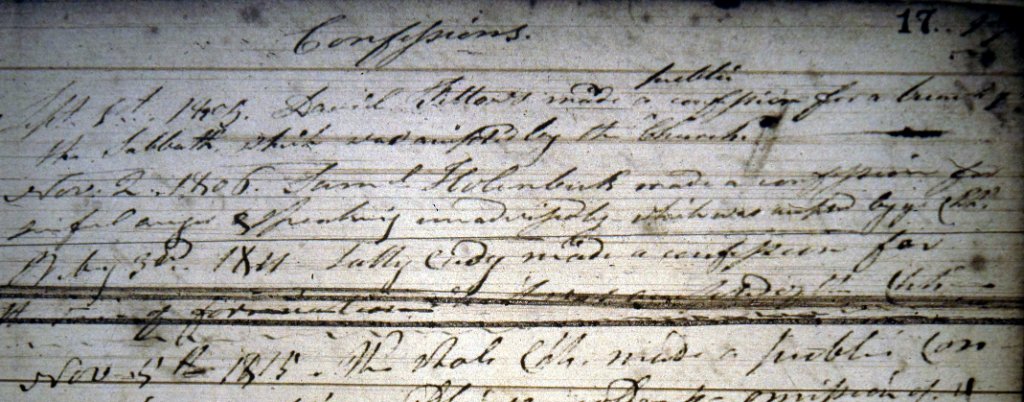 Confessions.
17.
Sept. 8th. 1805. David Fellows made a public confession for a breach of
the Sabbath which was accepted by the Church.
Nov. 2. 1806. Saml. Holenbeck made a confession for
sinful anger & speaking unadvisedly which was accepted by ye Chh.
May 3rd. 1811 Sally Eddy made a confession for
of fornication
Nov. 5th 1815. The whole Chh. made a public con
omission of